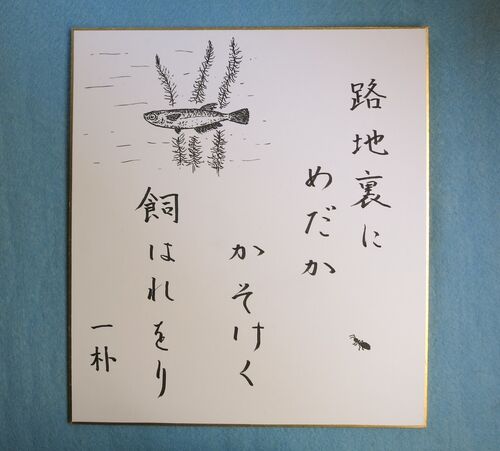 路地裏に
めだか
かそけく
飼はれをり
一朴